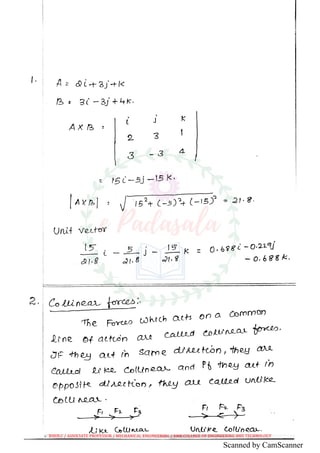 1. A = 2i + 3j + k
B = 3i - 3j + 4k.
A x B = | i j k
2 3 1
3 -3 4 |
= 15i - 5j - 15k.
|A x B| = √15²+(-5)²+(-15)² = 21.8.
Unit vector
15/21.8 i - 5/21.8 j - 15/21.8 k = 0.688i - 0.229j
- 0.688k.
2. Collinear forces:-
The Forces which acts on a common
line of action are called collinear forces.
If they act in same direction, they are
called like collinear and if they act in
opposite direction, they are called unlike
collinear.
F1 F2 F3 F1 F2 F3
Like Collinear Unlike Collinear.
e Padasala
ASSOCIATE PROFESSOR / MECHANICAL ENGINEERING / COLLEGE OF ENGINEERING AND TECHNOLOGY
Scanned by CamScanner